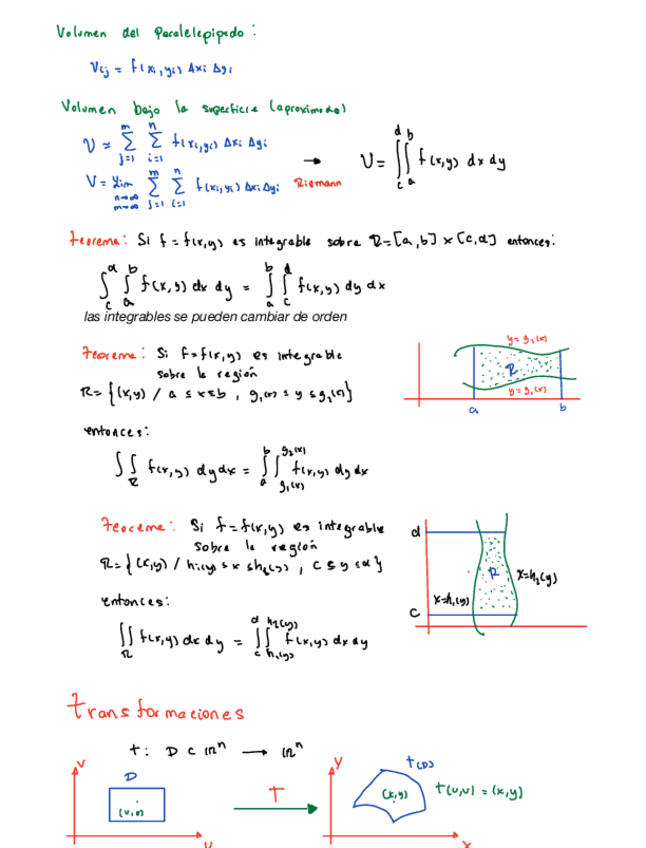 Volumen del Paralelepipedo :
Vij = f(xi, yi) Δxi Δyi
Volumen bajo la superficie (aproximado)
V ≈ m Σ j=1 n Σ i=1 f(xi, yi) Δxi Δyi
→ V = d∫c b∫a f(x,y) dx dy
V = Lim n→∞ m→∞ m Σ j=1 n Σ i=1 f(xi, yi) Δxi Δyi Riemann
teorema: Si f = f(x,y) es integrable sobre R = [a,b] x [c,d] entonces:
d∫c b∫a f(x,y) dx dy = b∫a d∫c f(x,y) dy dx
las integrables se pueden cambiar de orden
teorema: Si f = f(x,y) es integrable
sobre la región
R = {(x,y) / a ≤ x ≤ b , g1(x) ≤ y ≤ g1(x)}
y = g2(x)
R
y = g1(x)
a b
entonces:
∫∫R f(x,y) dy dx = b∫a g2(x)∫g1(x) f(x,y) dy dx
teorema: Si f = f(x,y) es integrable
sobre la región
R = {(x,y) / h1(y) ≤ x ≤ h2(y) , c ≤ y ≤ d}
d
R x=h2(y)
x=h1(y)
c
entonces:
∫∫R f(x,y) dx dy = d∫c h2(y)∫h1(y) f(x,y) dx dy
transformaciones
t: D ⊂ ℝn → ℝn
v D (u,v)
T
y t(D) (x,y) t(u,v) = (x,y)
x